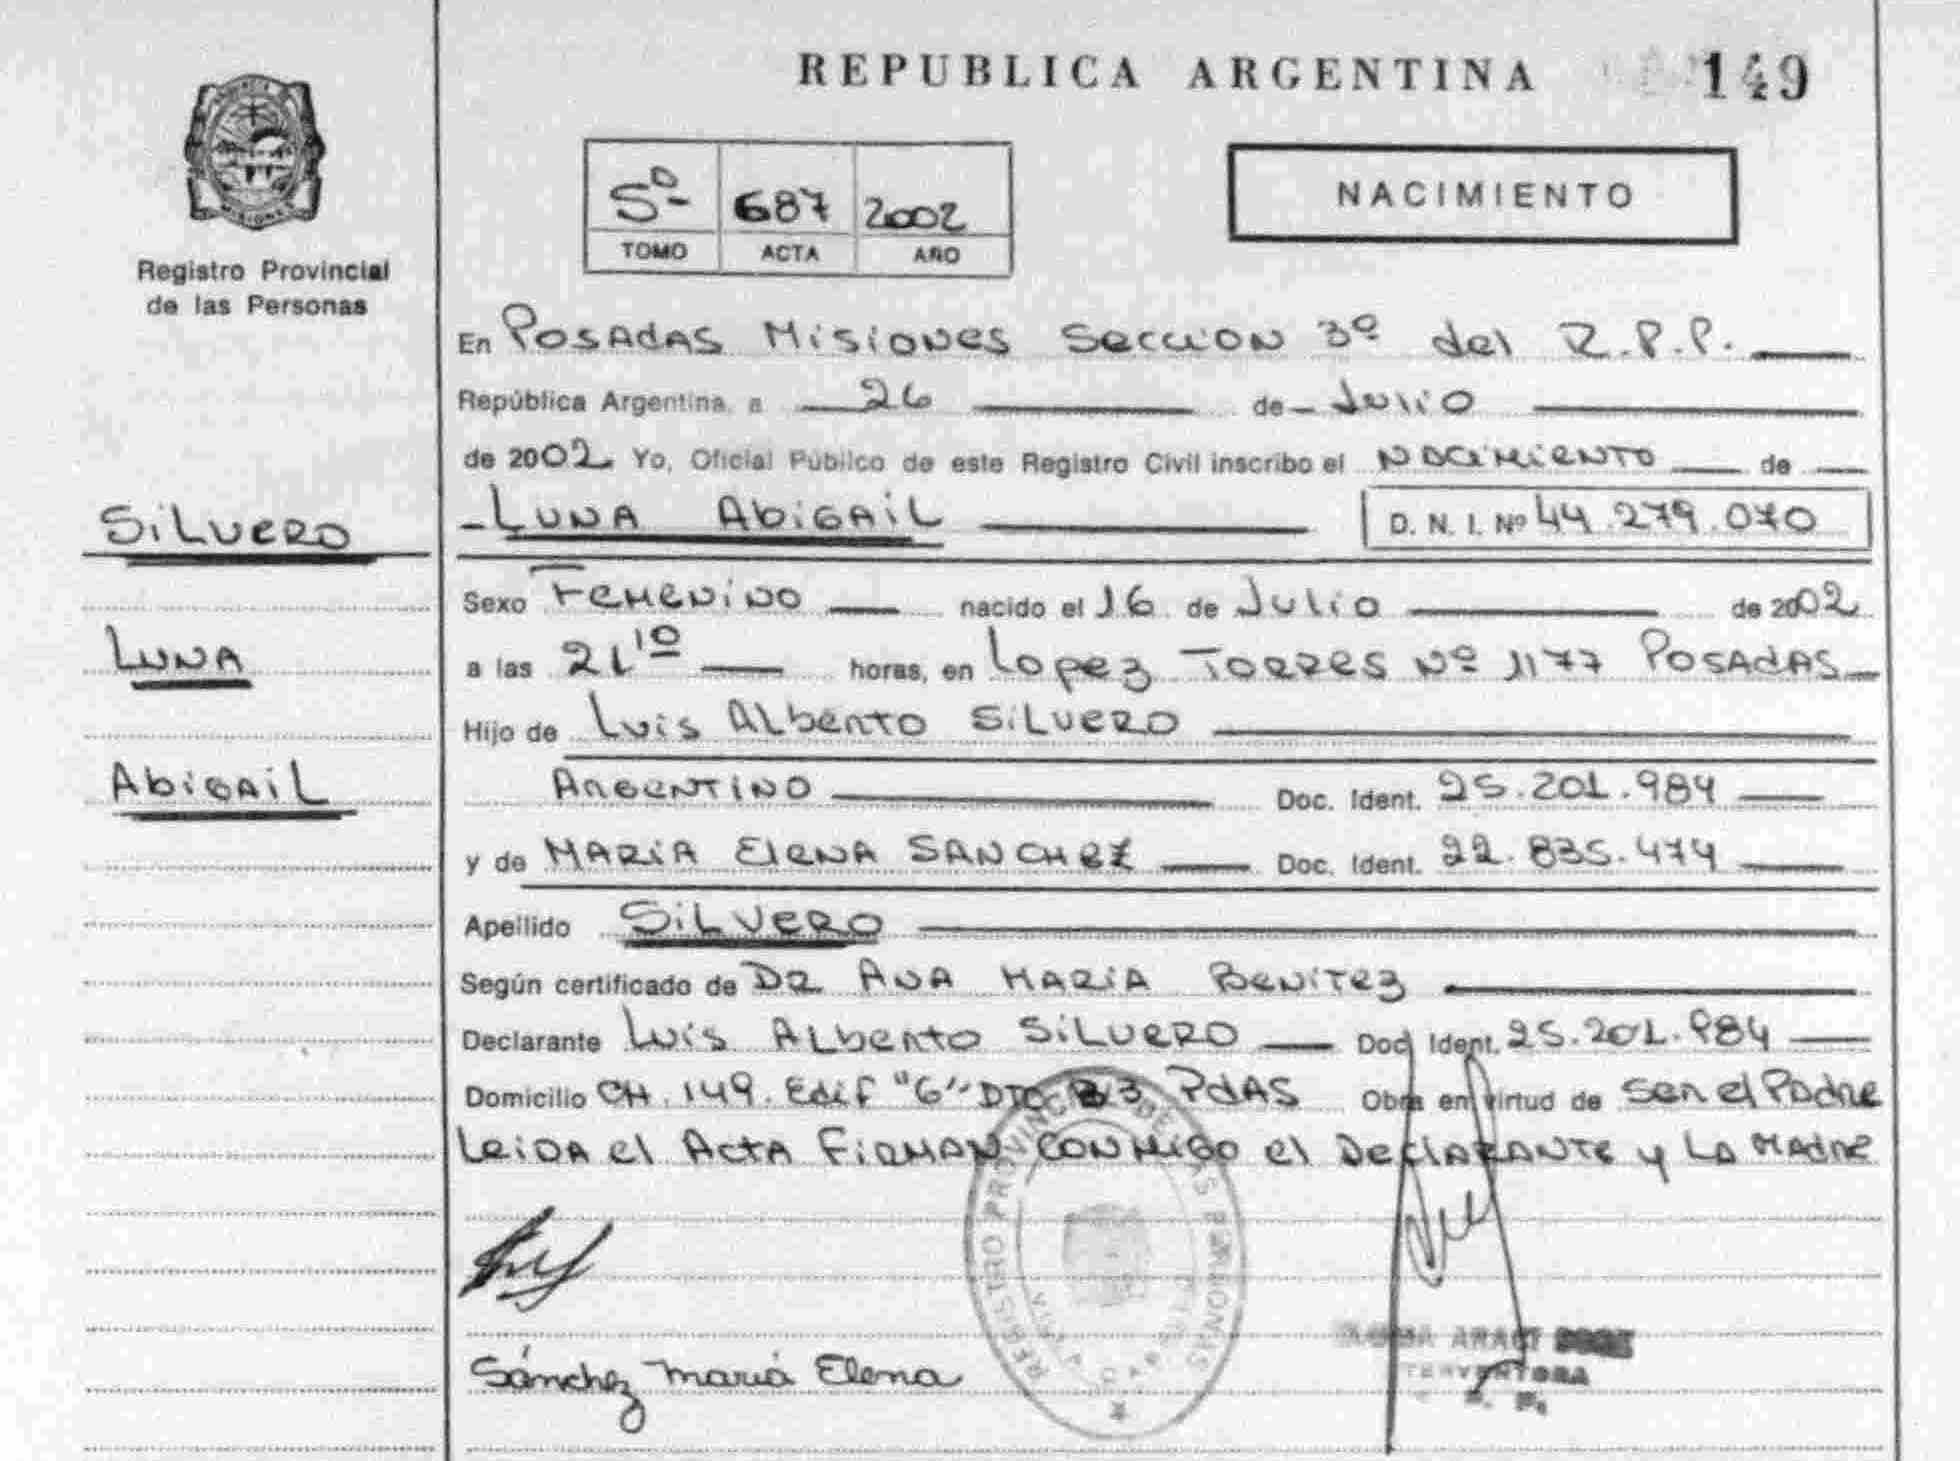 REPUBLICA ARGENTINA 149
5º 687 2002
TOMO ACTA AÑO
NACIMIENTO
Registro Provincial
de las Personas
En POSADAS MisiONes SeccION 3º del R.P.P.
República Argentina, a 26 de Julio
de 2002 Yo, Oficial Público de este Registro Civil inscribo el NACiMiENTO de
SiLVERO
LUNA AbiGAiL D. N. I. Nº 44.279.070
Sexo FEMENiNO nacido el 16 de JuLio de 2002
LUNA
a las 21 10 horas, en Lopez TORRES Nº 1177 POSADAS
Hijo de Luis ALbERTO SiLVERO
AbiGAiL
ARGENTINO Doc. Ident. 25.201.984
y de MARIA ElENA SANCHEZ Doc. Ident. 22.835.474
Apellido SiLVERO
Según certificado de DR ANA MARIA BENiTEZ
Declarante Luis ALbERTO SiLVERO Doc Ident. 25.201.984
Domicilio CH. 149. Edif "G" DTO B3 PdAS Obra en virtud de SER el PAdRE
LEiDA el ActA FiRMAN CONMiGO el DEclARANTE y LA MAdRE
REGISTRO PROVINCIAL DE LAS PERSONAS
Sánchez María Elena